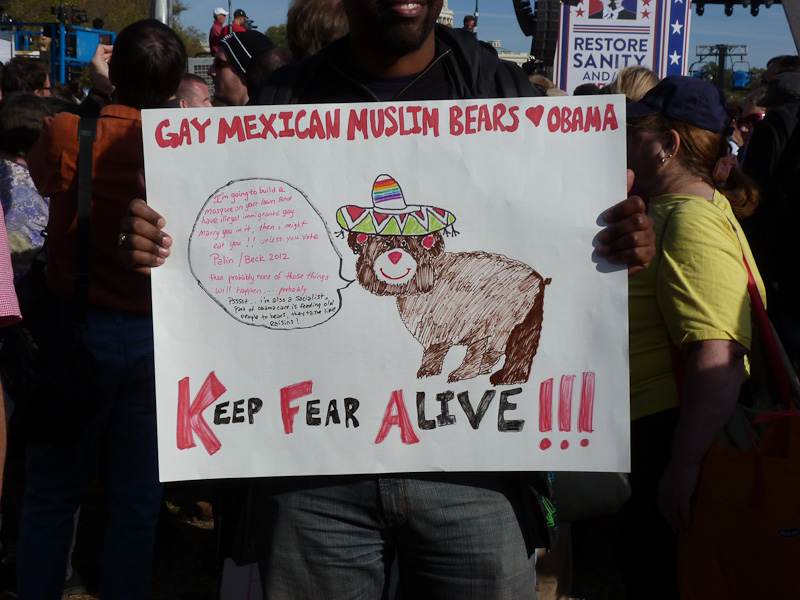 RESTORE
SANITY
AND/
GAY MEXICAN MUSLIM BEARS ♥ OBAMA
I'm going to build a
mosque on your lawn And
have illegal immigrants gay
marry you in it, then i might
eat you!! unless you vote
Palin/Beck 2012
then probably none of those things
will happen.... probably
Psssst.. i'm also a socialist,
Part of obamacare is feeding old
people to bears, they taste like
Raisins!
KEEP FEAR ALIVE!!!